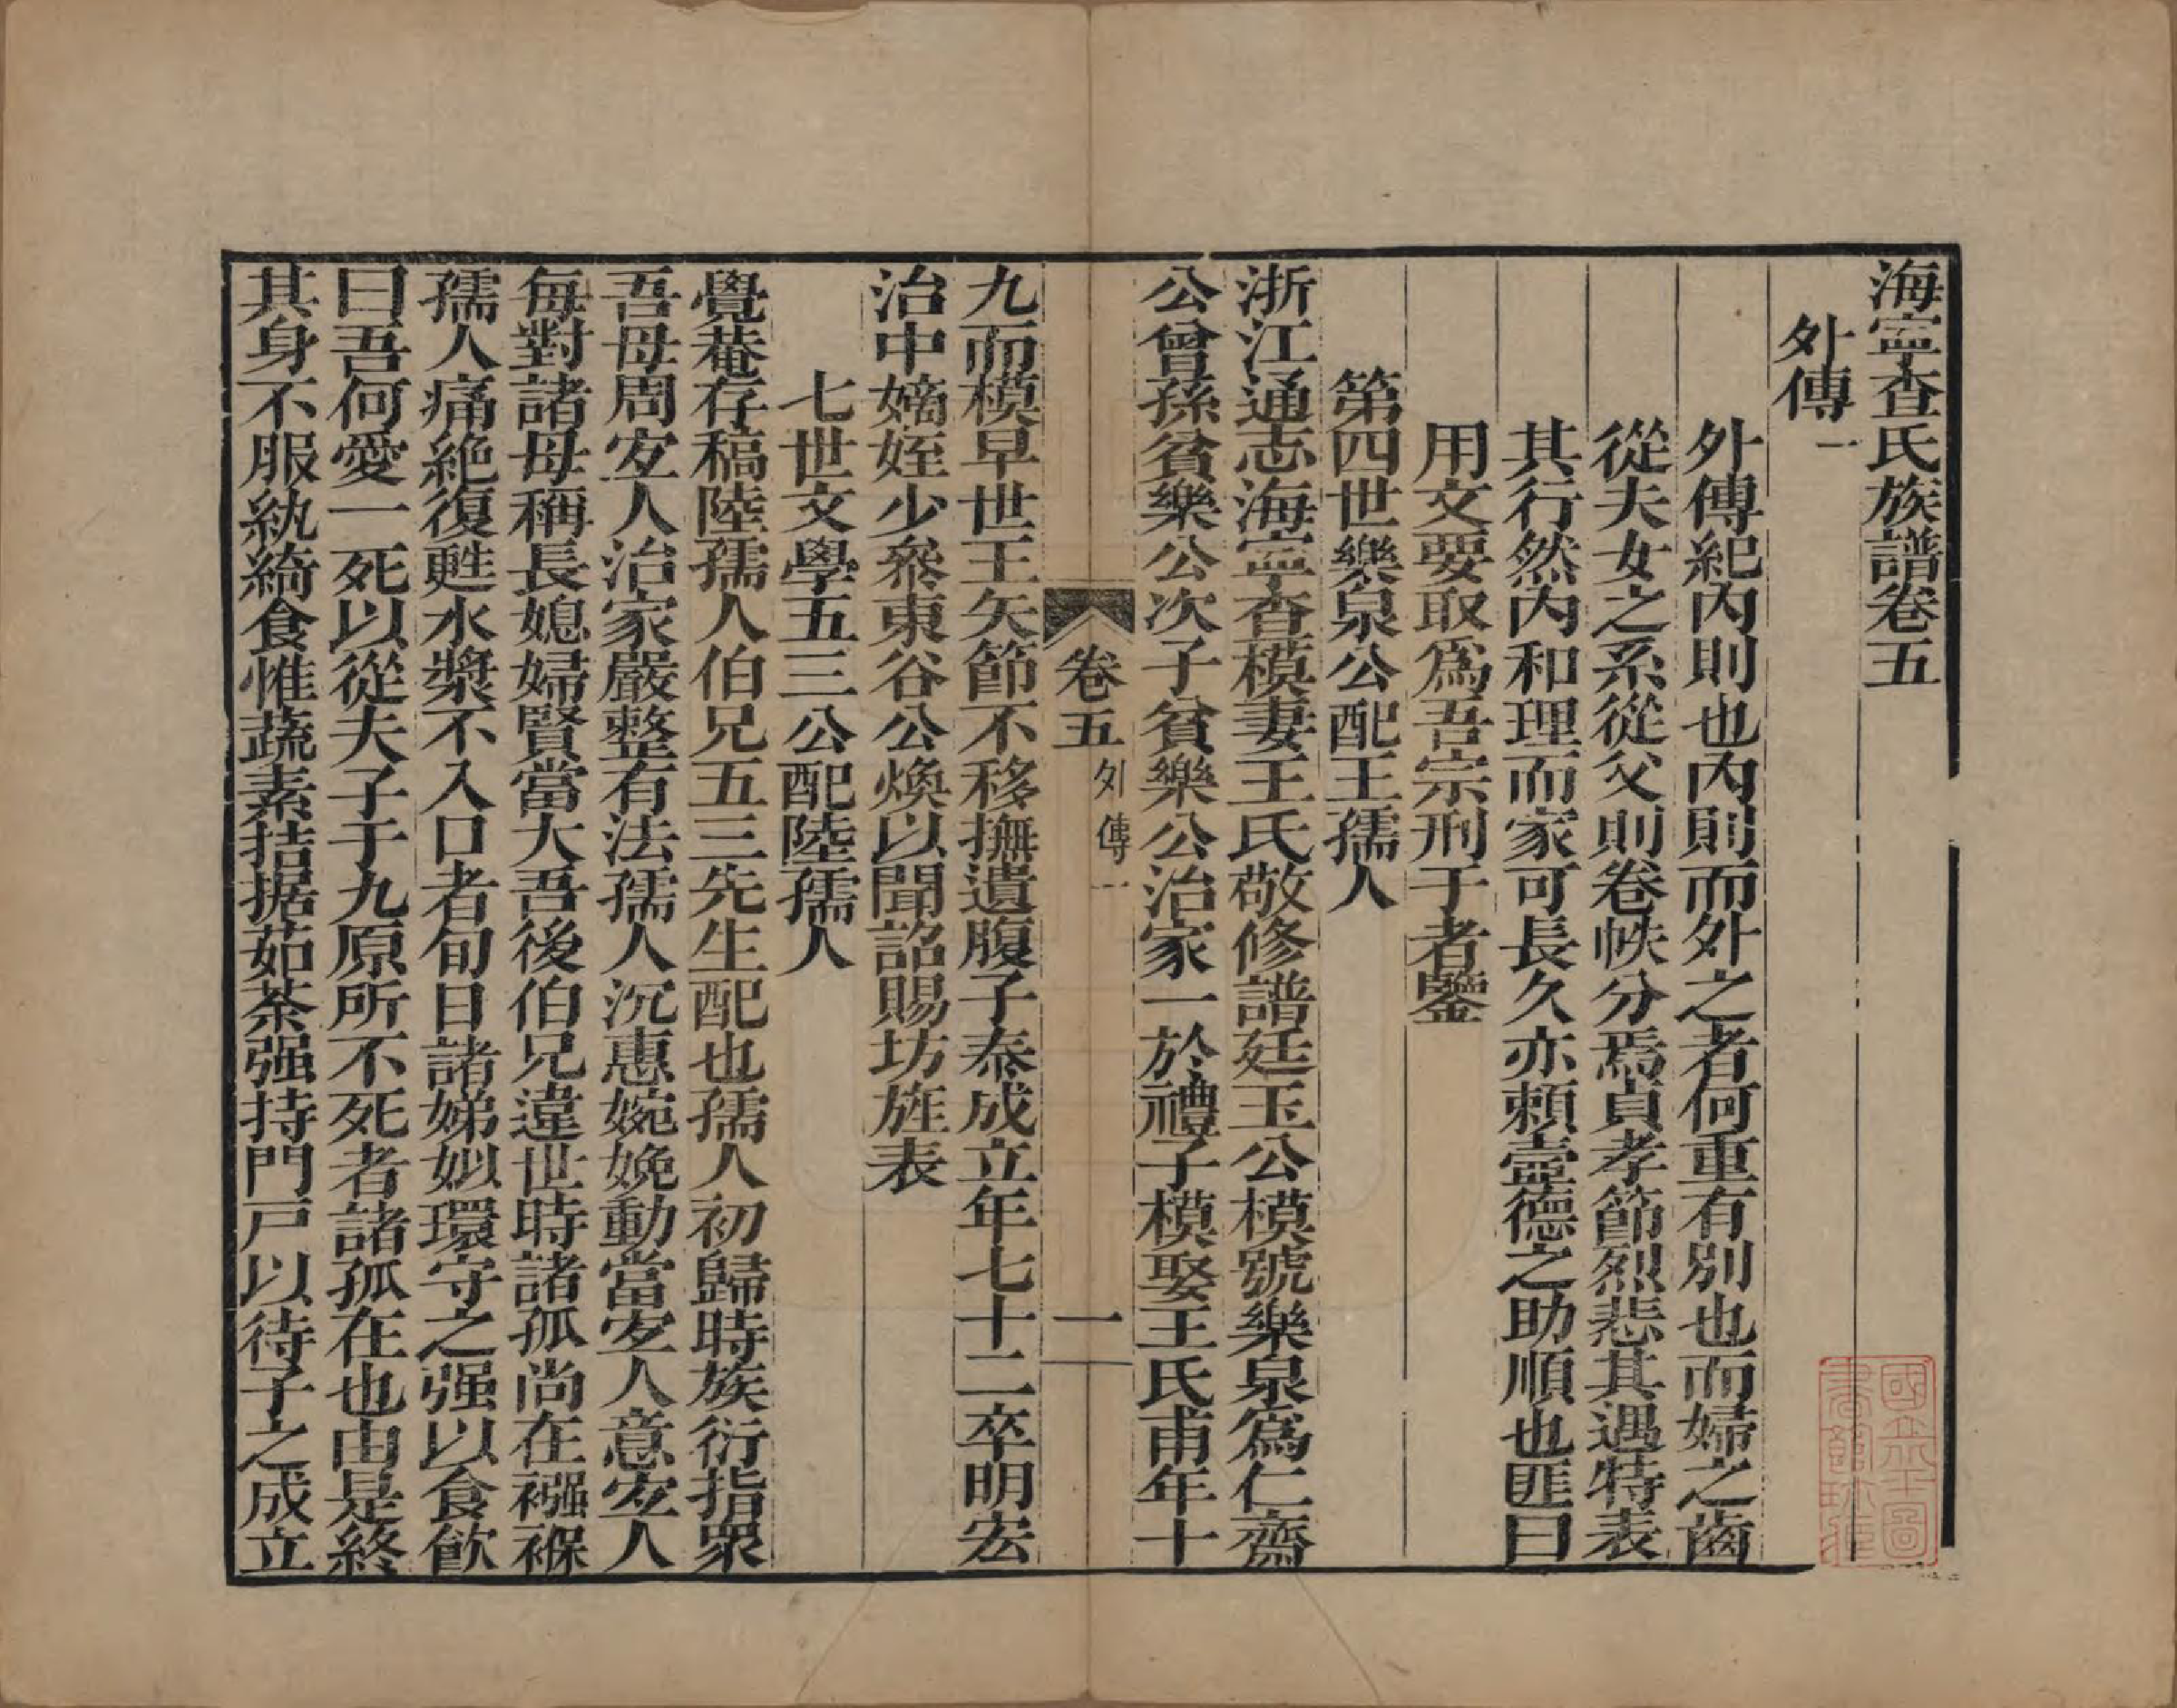 海寧查氏族譜卷五
外傳一
外傳紀內則也內則而外之者何重有別也而婦之齒
從夫女之系從父則卷帙分焉貞孝節烈悲其遇特表
其行然內和理而家可長久亦賴壼德之助順也匪曰
用文要取爲吾宗刑于者鑒
第四世樂泉公配王孺人
浙江通志海寧查模妻王氏敬修譜廷玉公模號樂泉爲仁齋
公曾孫貧樂公次子貧樂公治家一於禮子模娶王氏甫年十
卷五 外傳一 一
九而模早世王矢節不移撫遺腹子泰成立年七十二卒明宏
治中嫡姪少叅東谷公煥以聞詔賜坊旌表
七世文學五三公配陸孺人
覺菴存稿陸孺人伯兄五三先生配也孺人初歸時族衍指衆
吾母周安人治家嚴整有法孺人沉惠婉娩動當安人意安人
每對諸母稱長媳婦賢當大吾後伯兄違世時諸孤尚在襁褓
孺人痛絶復甦水漿不入口者旬日諸娣姒環守之强以食飲
曰吾何愛一死以從夫子于九原所不死者諸孤在也由是終
其身不服紈綺食惟蔬素拮据茹荼强持門戸以待子之成立
國立北平圖
書館珍藏